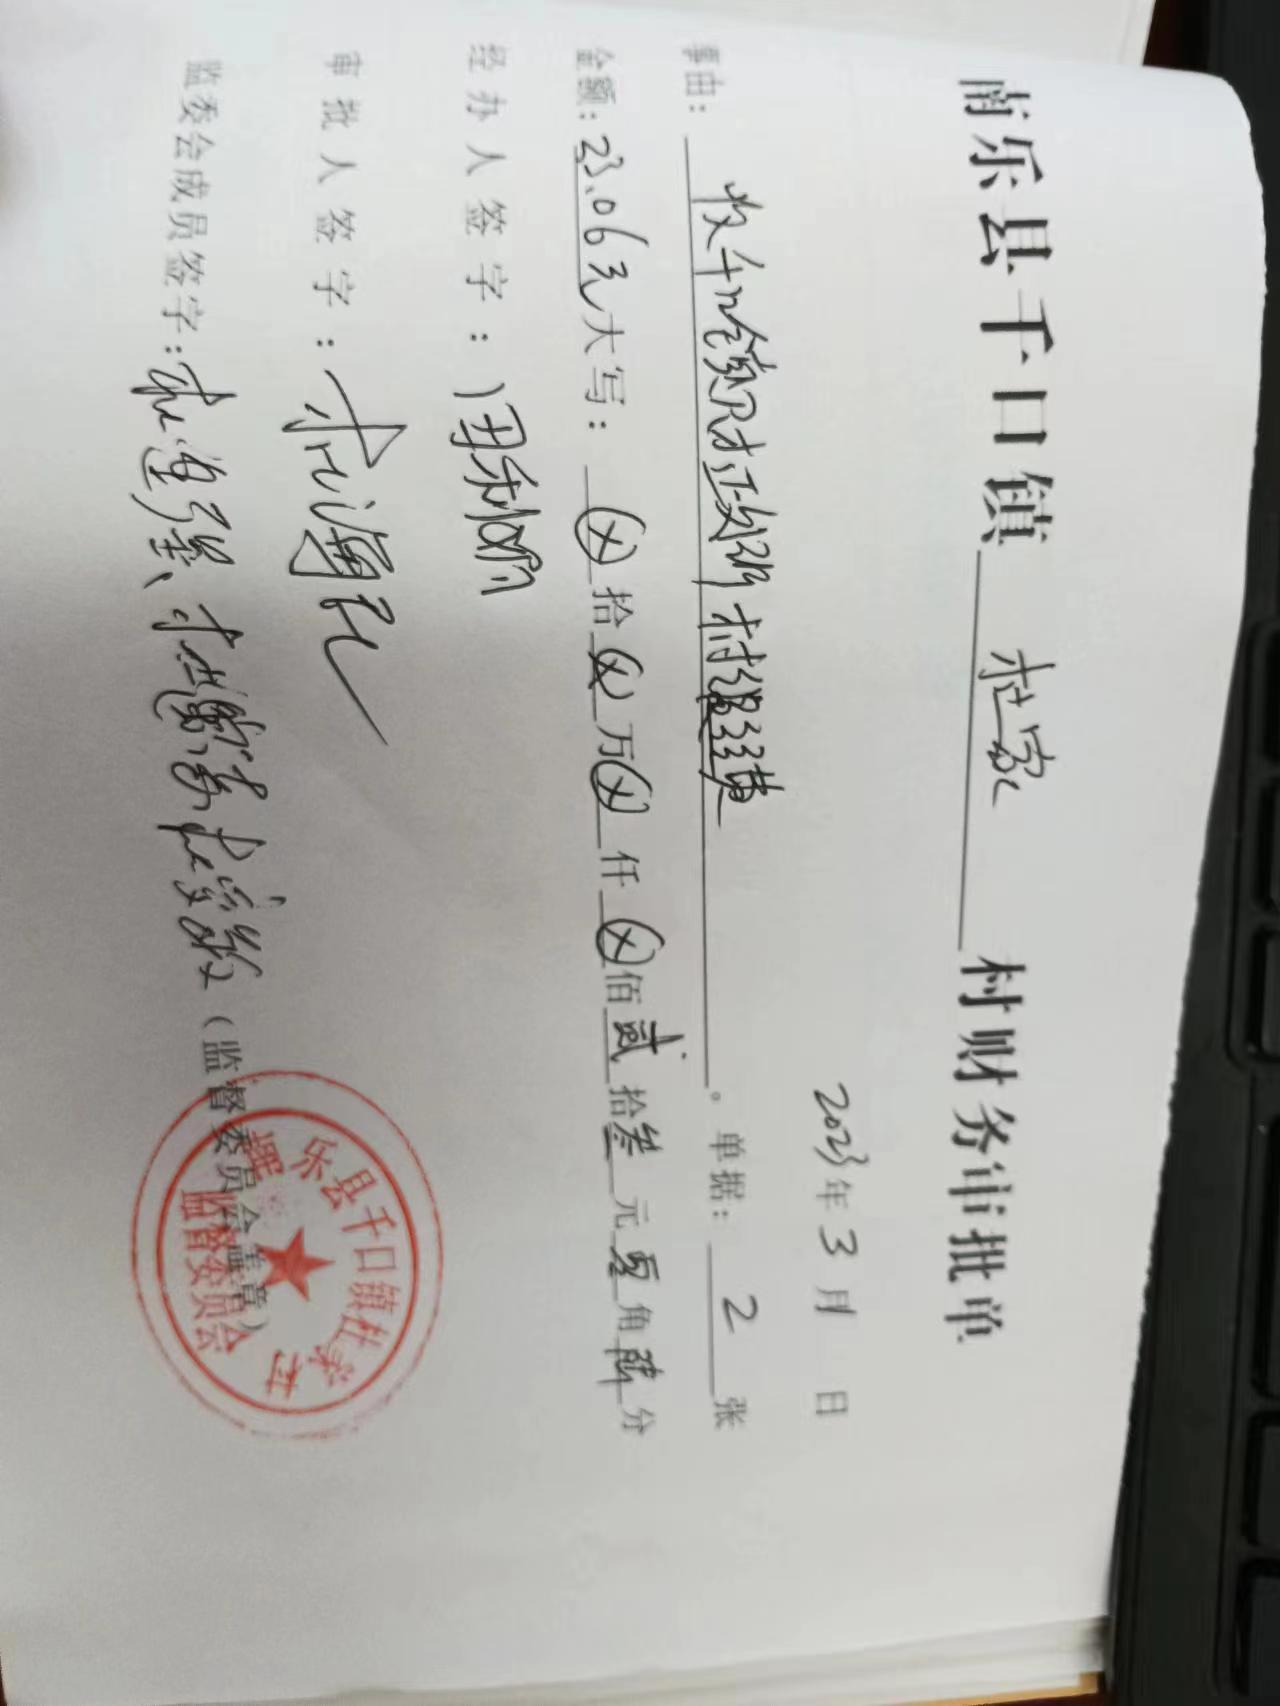 南乐县千口镇 杜家 村财务审批单
2023年3月 日
事由：收千口镇财政所村级经费。单据：2张
金额：23.06元大写：ⓧ拾ⓧ万ⓧ仟ⓧ佰贰拾叁元零角陆分
经办人签字：
审批人签字：
监委会成员签字：（监督委员会盖章）
乐县千口镇杜家村
监督委员会